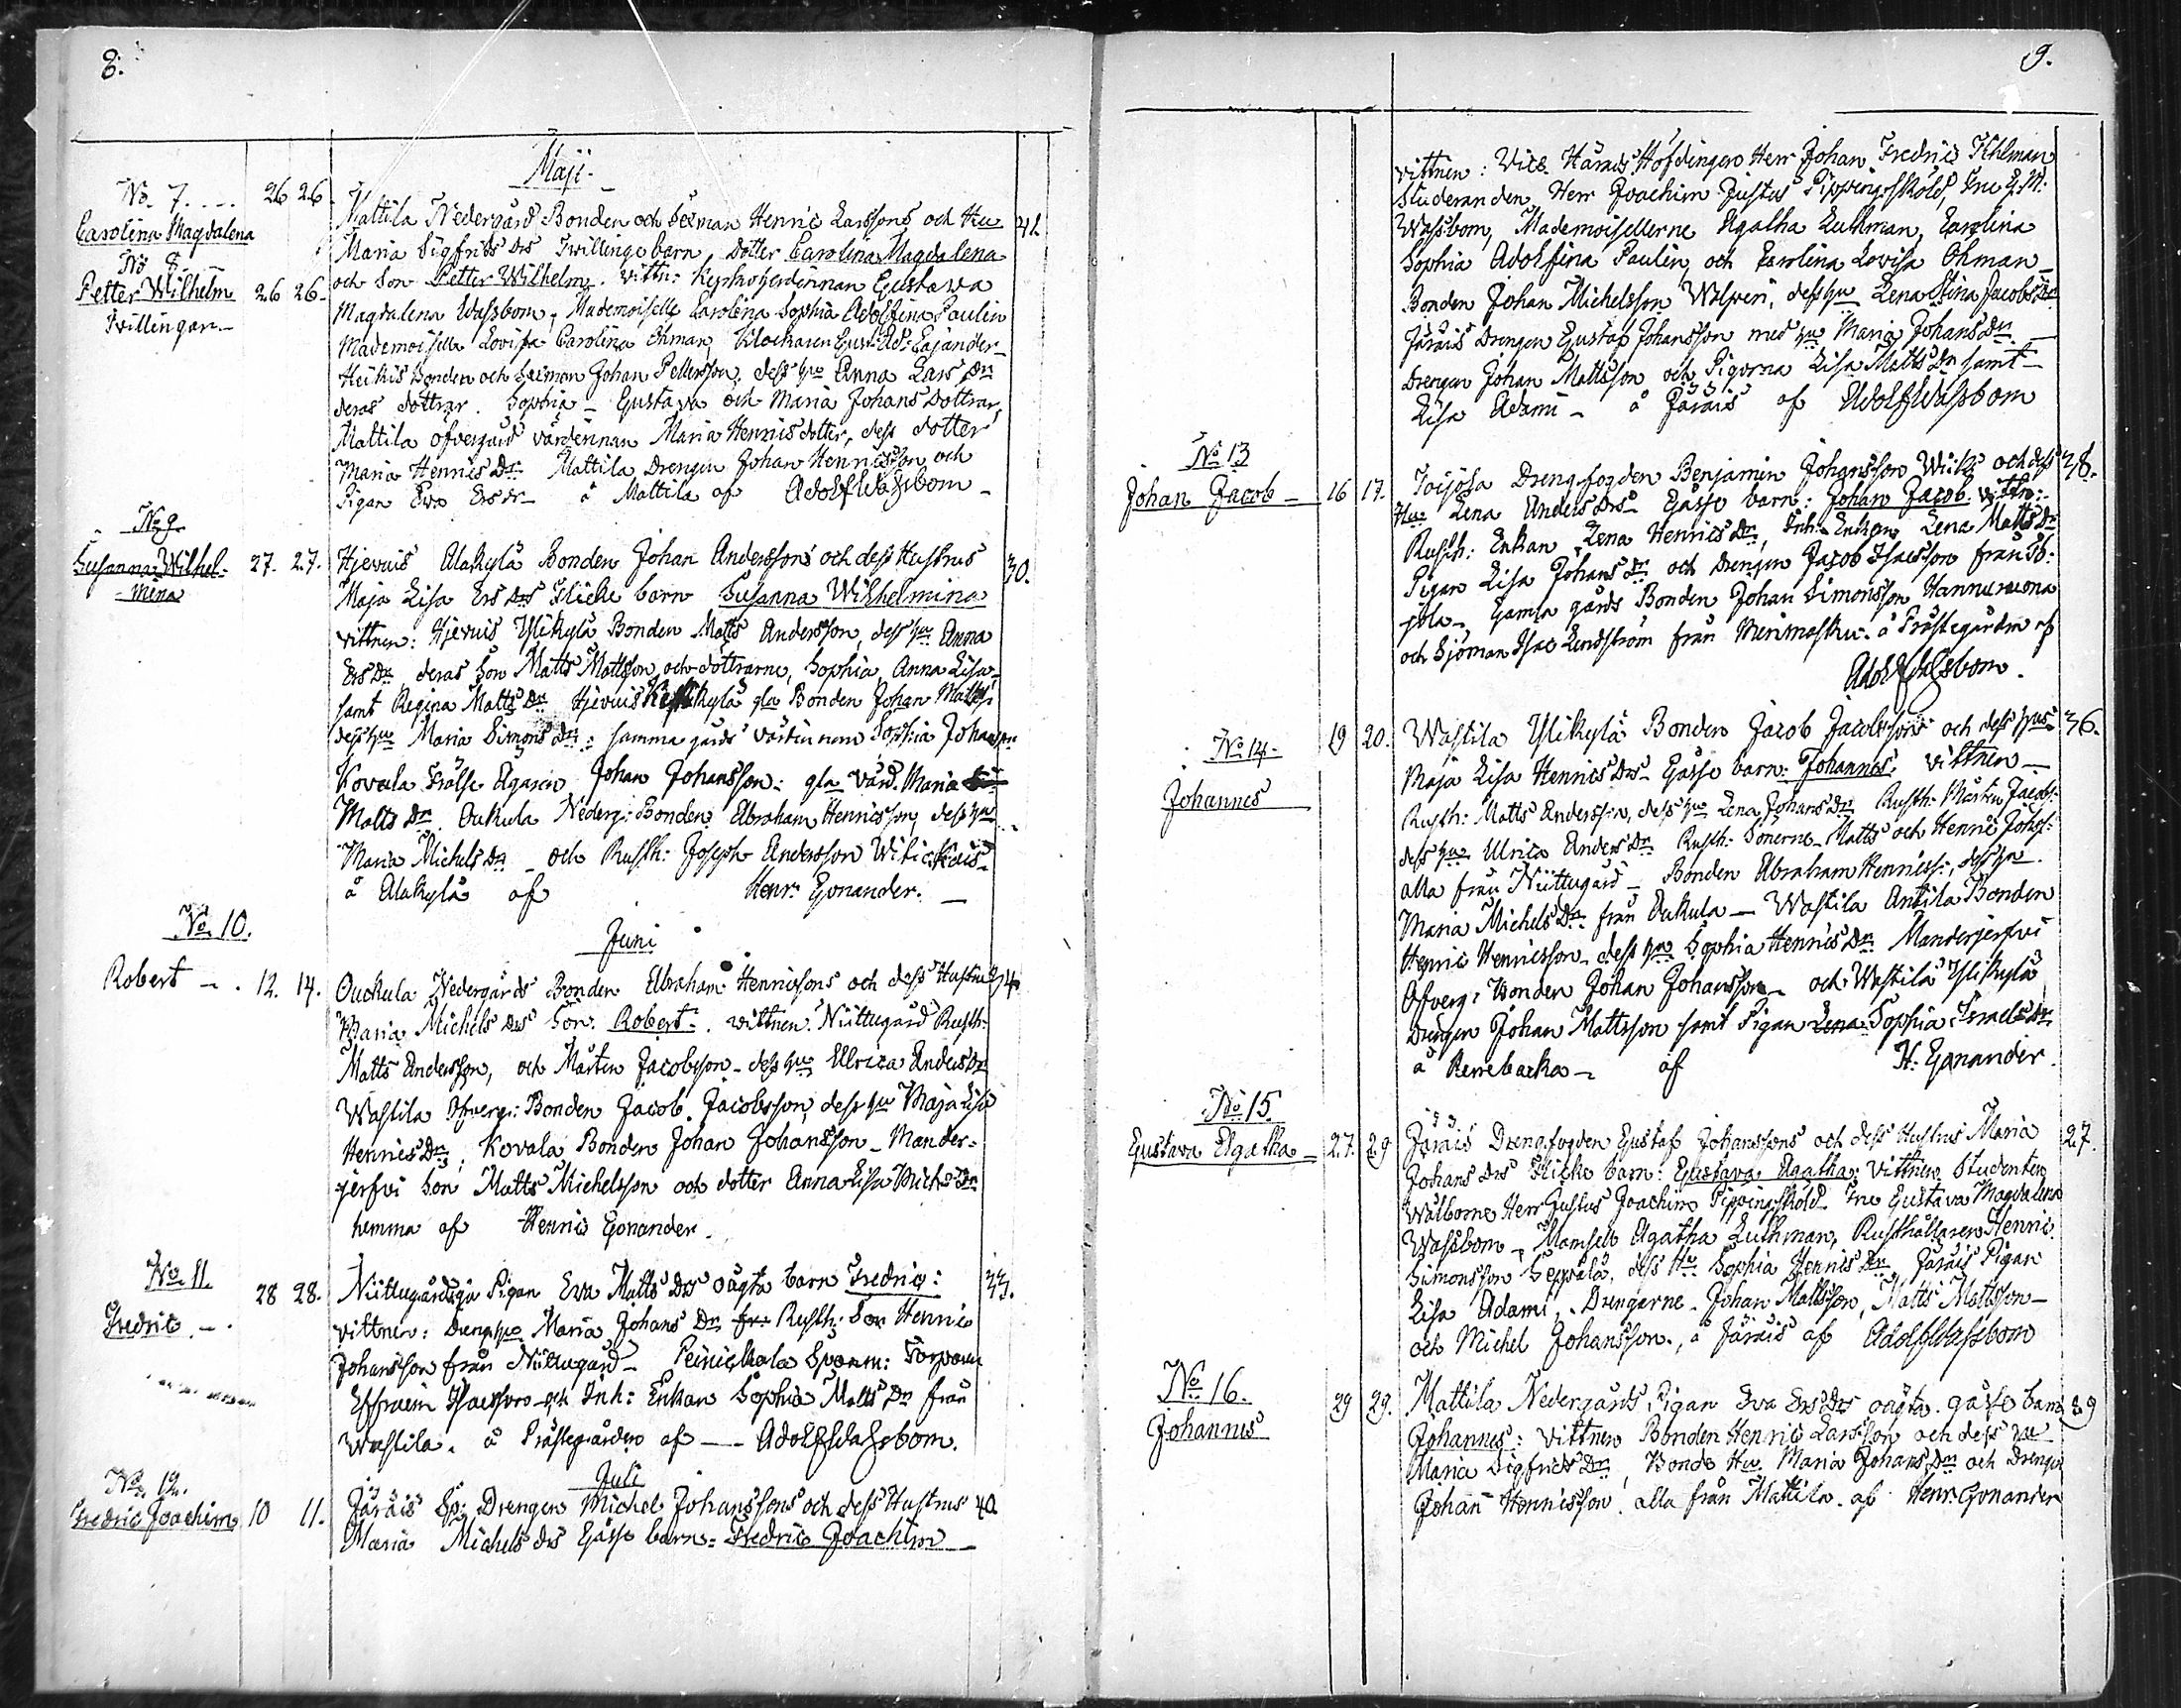 8.
Maji
No 7. 26 26.
Carolina Magdalena
No 8
Petter Wilhelm 26 26.
Tvillingar.
Mattila Nedergård Bonden och Sexman Henric Larssons och Hu 41
Maria Sigfrids Drs Tvillinge barn, Dotter Carolina Magdalena
och Son Petter Wilhelm. vittn: Kyrkoherdinnan Gustava
Magdalena Wassbom, Mademoiselle Carolina Sophia Adolfina Paulin
Mademoiselle Lovisa Carolina Öhman, Klockaren Gust: Ad: Cajander
Heikis Bonden och Sexman Johan Pettersson, dess hu Anna Lars Dr
deras döttrar. Sophia - Gustava och Maria Johans Döttrar,
Mattila öfvergård värdinnan Maria Henricsdotter, dess dotter
Maria Henrics Dr. Mattila Drengen Johan Henricsson och
Pigan Eva Ers dr - å Mattila af Adolf Wassbom
No 9.
Susanna Wilhel- 27. 27.
mina
Hjervuis Alakylä Bonden Johan Anderssons och dess Hustrus 30.
Maja Lisa Ers Drs Flicke barn Susanna Wilhelmina
vittnen: Hjervuis Ylikylä Bonden Matts Andersson, dess hu Anna
Ers Dr deras Son Matts Mattsson, och döttrarne, Sophia, Anna Lisa
samt Regina Matts Dr Hjervuis Keskikylä gla Bonden Johan Mattss:
dess hu Maria Simons dr: samma gårds värdinnan Sophia Johans dr
Kovala Frälse Egaren Johan Johansson: gla värd. Maria
Matts Dr. Oukula Nederg: Bonden Abraham Henricsson, dess hu
Maria Michels Dr - och Rusth: Joseph Andersson Witickais
å Alakylä af Henr: Gonander.
Juni
No 10.
Robert - . 12. 14.
Ouckula Nedergårds Bonden Abraham Henrissons och dess Hustrus 34
Maria Michels Drs Son. Robert. vittnen. Niittugård Rusth:
Matts Andersson, och Mårten Jacobsson - dess hu Ulrica Anders Dr
Wastila Öfverg: Bonden Jacob Jacobsson, dess hu Maja Lisa
Henrics Dr, Kovala Bonden Johan Johansson - Mander-
jerfvi Son Matts Michelsson och dotter Anna Lisa Mich: Dr
hemma af Henric Gonander.
No 11.
Fredric - . 28 28.
Niittugårds Pigan Eva Matts Drs oägta barn Fredric: 33.
vittnen: Dreng hu Maria Johans Dr fr: Rusth: Son Henric
Johansson från Niittugård - Torparen
Effraim Isacsson och Inh: Enkan Sophia Matts Dr från
Wastila. å Prästegården af - Adolf Wassbom.
Juli
No 12.
Fredric Joachim 10 11.
Järäis Sp: Drengen Michel Johanssons och dess Hustrus 40
Maria Michels drs Gosse barn: Fredric Joachim
9.
vittnen: Vice Härads Höfdingen Herr Johan Fredric Ihlman
Studeranden Herr Joachim Justus Pippingsköld, Fru G.M:
Wassbom, Mademoisellerne Agatha Luthman, Carolina
Sophia Adolfina Paulin, och Carolina Lovisa Öhman
Bonden Johan Michelsson Wolperi, dess hu Lena Stina Jacobs Dr
Järäis Drengen Gustaf Johansson med hu Maria Johans Dr
Drengen Johan Mattsson och Pigorna Lisa Matts Dr samt
Lisa Adami - å Järäis af Adolf Wassbom
No 13
Johan Jacob 16 17.
Toijola Drengfogden Benjamin Johansson Wiiks och dess 38.
Hu Lena Anders Drs Gosse barn: Johan Jacob. vittn:
Rusth: Enkan Lena Henrics Dr, Inh: Enkan Lena Matts Dr
Pigan Lisa Johans dr och Drengen Jacob Isacsson från
jola - Gamla gårds Bonden Johan Simonsson Hannunmona
och Sjöman Isac Lindström från Merimasku. å Prästegården af
Adolf Wassbom.
No 14.
Johannes 19 20.
Wastila Ylikylä Bonden Jacob Jacobssons och dess hus 36.
Maja Lisa Henrics Drs Gosse barn: Johannes: vittnen
Rusth: Matts Andersson, dess hu Lena Johans Dr Rusth: Mårten Jacobs:
dess hu Ulrica Anders Dr Rusth: Sönerne Matts och Henric Johs:
alla från Niittugård - Bonden Abraham Henricss:, dess hu
Maria Michels Dr från Oukula - Wastila Antila Bonden
Henric Henricsson - dess hu Sophia Henrics Dr Manderjerfvi
Öfverg: Bonden Johan Johansson - och Wastila Ylikylä
Drengen Johan Mattsson samt Pigan Lena Sophia Israels Dr
å Renebacka - af H: Gonander.
No 15.
Gustava Agatha 27. 29
Järäis Drengfogden Gustaf Johanssons och dess Hustrus Maria 27.
Johans Drs Flicke barn: Gustava Agatha: vittnen Studenten
Wälborne Herr Justus Joachim Pippingsköld. Fru Gustava Magdalena
Wassbom - Mamsell Agatha Luthman, Rusthållaren Henric
Simonsson Seppälä, dess Hu Sophia Henrics Dr Järäis Pigan
Lisa Adami, Drengarne Johan Mattsson, Matts Mattsson
och Michel Johansson, å Järäis af Adolf Wassbom
No 16.
Johannes 29 29.
Mattila Nedergårds Pigan Eva Ers Drs oägta gosse barn 29
Johannes: vittnen Bonden Henric Larsson och dess hu
Maria Sigfrids Dr, Bonde Hu. Maria Johans Dr och Drengen
Johan Henricsson. alla från Mattila. af Henr: Gonander